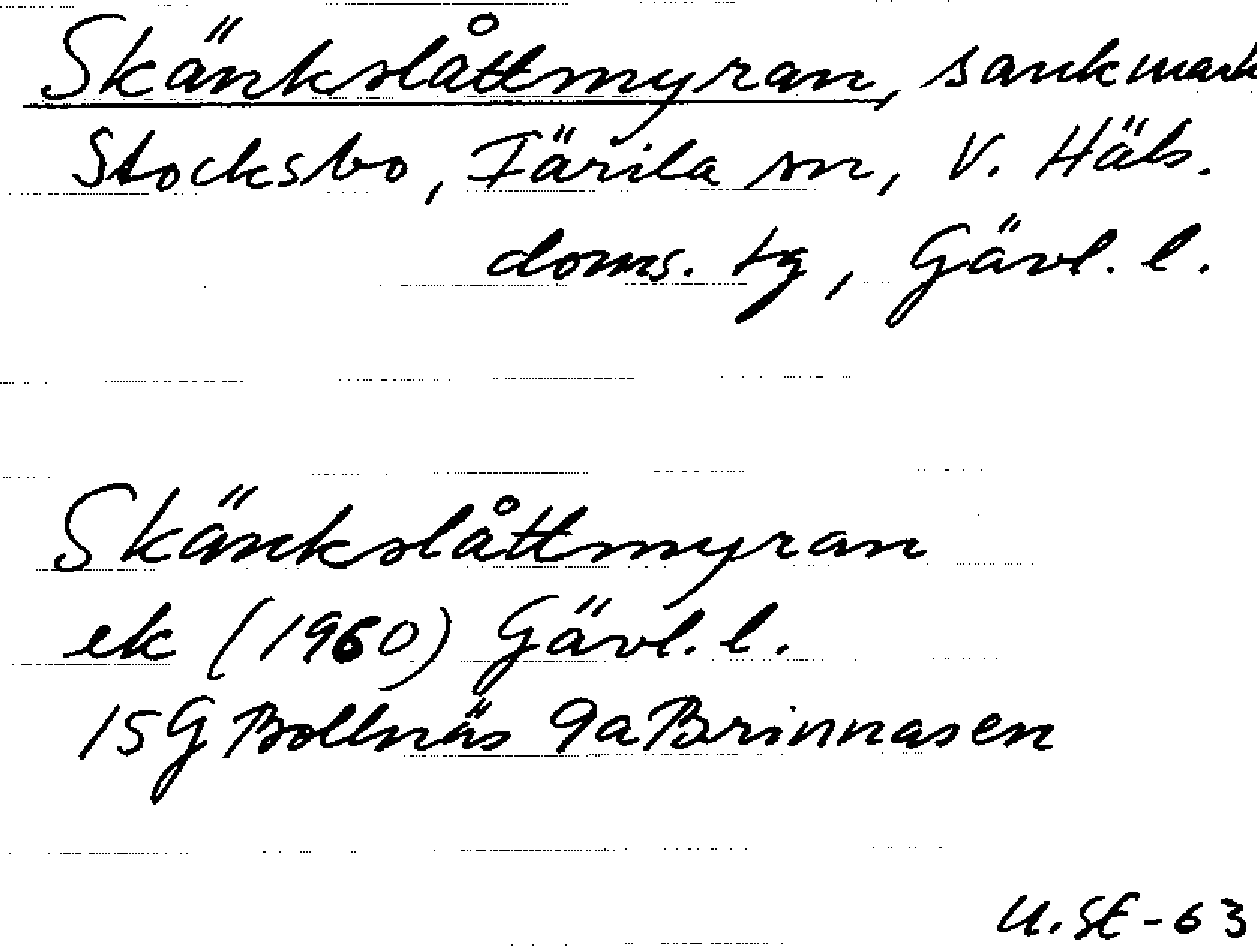 Skänkslåttmyran, sankmark
Stocksbo, Färila sn, V. Häls.
doms. tg, Gävl. l.
Skänkslåttmyran
ek (1960) Gävl. l.
15G Bollnäs 9a Brinnasen
U.SE-63